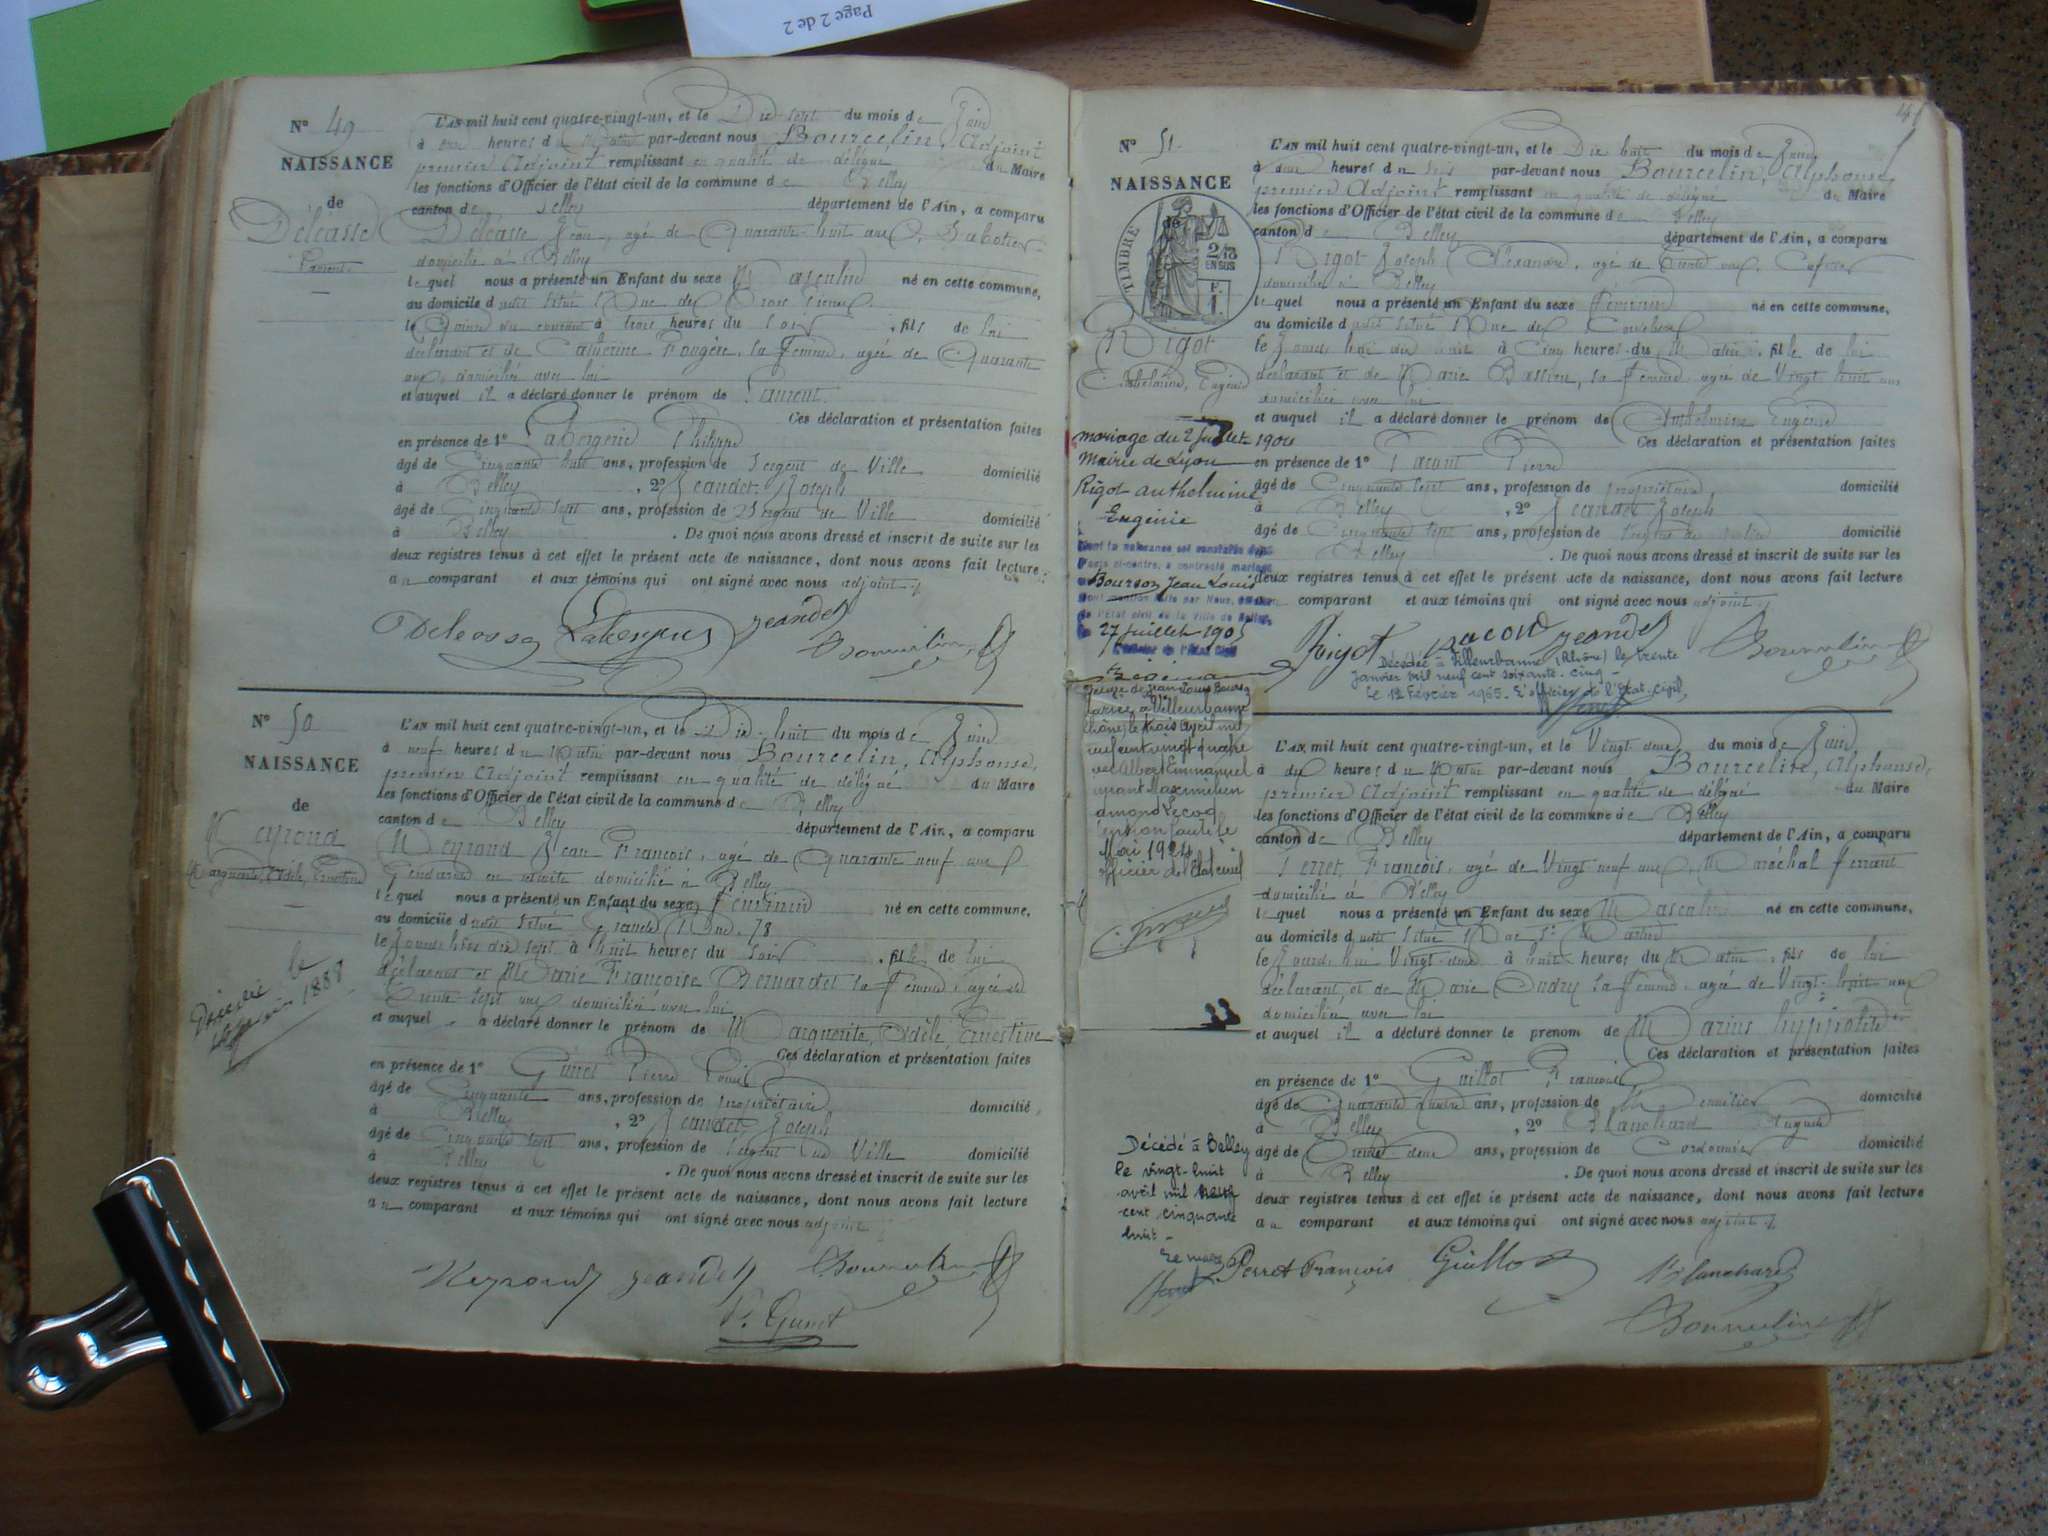 Page 2 de 2
N° 49
NAISSANCE
de
Déléasse
Laurent
L'AN mil huit cent quatre-vingt-un, et le Dix sept du mois de Juin
à heures du Matin par-devant nous Bourcelin, Adjoint
premier Adjoint remplissant en qualité de délégué du Maire
les fonctions d'Officier de l'état civil de la commune de Belley
canton de Belley département de l'Ain, a comparu
Déléasse Jean, agé de Quarante huit ans, Sabotier
domicilié à Belley
lequel nous a présenté un Enfant du sexe Masculin né en cette commune,
au domicile d situé Rue des
le Quinze du courant à trois heures du Soir, fils de lui
déclarant et de Catherine Rougère, sa femme, agée de Quarante
ans, domiciliée avec lui
et auquel il a déclaré donner le prénom de Laurent.
Ces déclaration et présentation faites
en présence de 1° Labergerie Philippe
âgé de Cinquante huit ans, profession de Sergent de Ville domicilié
à Belley, 2° Jeandet Joseph
âgé de Cinquante sept ans, profession de Sergent de Ville domicilié
à Belley. De quoi nous avons dressé et inscrit de suite sur les
deux registres tenus à cet effet le présent acte de naissance, dont nous avons fait lecture
au comparant et aux témoins qui ont signé avec nous adjoint.
Jeandet
N° 50
NAISSANCE
de
Meyrond
Marguerite, Adèle, Ernestine
Décédée le
1888
L'AN mil huit cent quatre-vingt-un, et le Dix-huit du mois de Juin
à neuf heures du Matin par-devant nous Bourcelin, Alphonse,
premier Adjoint remplissant en qualité de délégué du Maire
les fonctions d'Officier de l'état civil de la commune de Belley
canton de Belley département de l'Ain, a comparu
Meyrond Jean François, agé de Quarante neuf ans
Gendarme en retraite domicilié à Belley
lequel nous a présenté un Enfant du sexe Féminin né en cette commune,
au domicile d situé Grande Rue, 78
le Jourd'hier dix sept à huit heures du Soir, fille de lui
déclarant et de Marie Françoise Bernardet sa femme, agée de
Trente-sept ans domiciliée avec lui
et auquel a déclaré donner le prénom de Marguerite, Adèle, Ernestine
Ces déclaration et présentation faites
en présence de 1° Pierre Louis
âgé de Cinquante ans, profession de propriétaire domicilié
à Belley, 2° Jeandet Joseph
âgé de Cinquante sept ans, profession de Sergent de Ville domicilié
à Belley. De quoi nous avons dressé et inscrit de suite sur les
deux registres tenus à cet effet le présent acte de naissance, dont nous avons fait lecture
au comparant et aux témoins qui ont signé avec nous adjoint
Meyrond Jeandet
N° 51.
NAISSANCE
de
TIMBRE
2/10
EN SUS
Rigot
Anthelmine, Eugénie
mariage du 2 Juillet 1904
Mairie de Lyon
Rigot anthelmine
Eugénie
dont la naissance est constatée
l'acte ci-contre, a contracté mariage
Bourson Jean Louis
de l'État civil de la Ville de Belley,
27 juillet 1905
L'Officier de l'État Civil
veuve de Jean Louis Bourson
mariée à Villeurbanne
(Rhône) le trois avril mil
neuf cent vingt quatre
avec Albert Emmanuel
Maximilien
Lecoq
Mention faite le
Mai 1924
officier de l'État civil
L'AN mil huit cent quatre-vingt-un, et le Dix huit du mois de Juin
à heures du Soir par-devant nous Bourcelin, Alphonse,
premier Adjoint remplissant en qualité de délégué du Maire
les fonctions d'Officier de l'état civil de la commune de Belley
canton de Belley département de l'Ain, a comparu
Rigot Joseph Alexandre, agé de Trente ans, Cafetier
domicilié à Belley
lequel nous a présenté un Enfant du sexe féminin né en cette commune,
au domicile d situé Rue des
le Jourd'hui dix huit à Cinq heures du Matin, fille de lui
déclarant et de Marie Bastien, sa femme, agée de Vingt huit ans
domiciliée avec lui
et auquel il a déclaré donner le prénom de Anthelmine Eugénie
Ces déclaration et présentation faites
en présence de 1° Pacout Pierre
âgé de Cinquante sept ans, profession de propriétaire domicilié
à Belley, 2° Jeandet Joseph
âgé de Cinquante sept ans, profession de domicilié
à Belley. De quoi nous avons dressé et inscrit de suite sur les
deux registres tenus à cet effet le présent acte de naissance, dont nous avons fait lecture
au comparant et aux témoins qui ont signé avec nous adjoint.
Rigot Jeandet
Décédée à Villeurbanne (Rhône) le trente
janvier mil neuf cent soixante-cinq -
Le 12 Février 1965. L'officier de l'état-civil,
L'AN mil huit cent quatre-vingt-un, et le Vingt deux du mois de Juin
à dix heures du Matin par-devant nous Bourcelin, Alphonse,
premier Adjoint remplissant en qualité de délégué du Maire
les fonctions d'Officier de l'état civil de la commune de Belley
canton de Belley département de l'Ain, a comparu
Perret, François, agé de Vingt neuf ans, Maréchal ferrant
domicilié à Belley
lequel nous a présenté un Enfant du sexe Masculin né en cette commune,
au domicile d situé Rue St Martin
le Jourd'hui Vingt-deux à huit heures du Matin, fils de lui
déclarant, et de Marie Oudry sa femme, agée de Vingt-huit ans
domiciliée avec lui
et auquel il a déclaré donner le prenom de Marius hyppolite
Ces déclaration et présentation faites
en présence de 1° Guillot François
âgé de Quarante quatre ans, profession de domicilié
à Belley, 2° Blanchard Auguste
âgé de Trente deux ans, profession de Cordonnier domicilié
à Belley. De quoi nous avons dressé et inscrit de suite sur les
deux registres tenus à cet effet le présent acte de naissance, dont nous avons fait lecture
au comparant et aux témoins qui ont signé avec nous adjoint.
Décédé à Belley
le vingt-huit
avril mil neuf
cent cinquante
huit -
Le maire
Perret François Guillot Blanchard